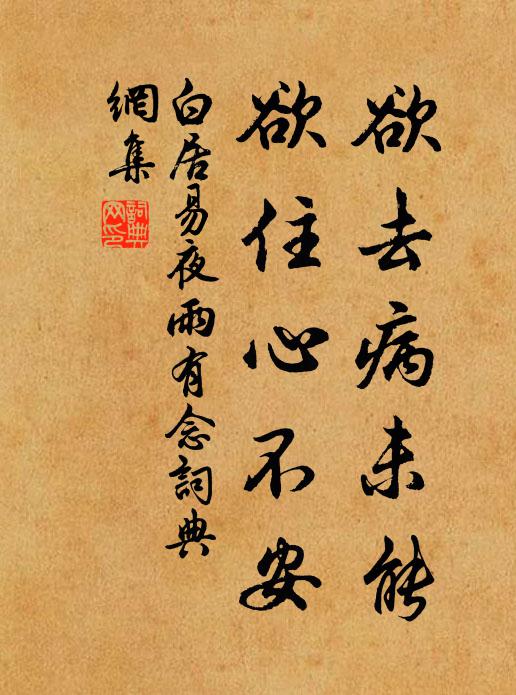 欲去病未能
欲住心不安
白居易夜雨有念詞典
網集
詞典
网印